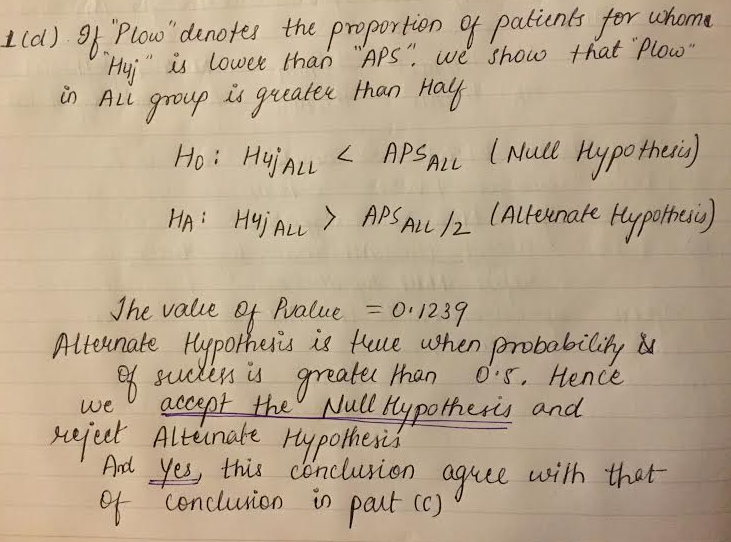 1(d). If "Plow" denotes the proportion of patients for whome
"Hyj" is lower than "APS". we show that "Plow"
in ALL group is greater than Half
H0: HyjALL < APSALL (Null Hypothesis)
HA: HyjALL > APSALL/2 (Alternate Hypothesis)
The value of Pvalue = 0.1239
Alternate Hypothesis is true when probability is
of success is greater than 0.5. Hence
we accept the Null Hypothesis and
reject Alternate Hypothesis
And Yes, this conclusion agree with that
of conclusion in part (c)